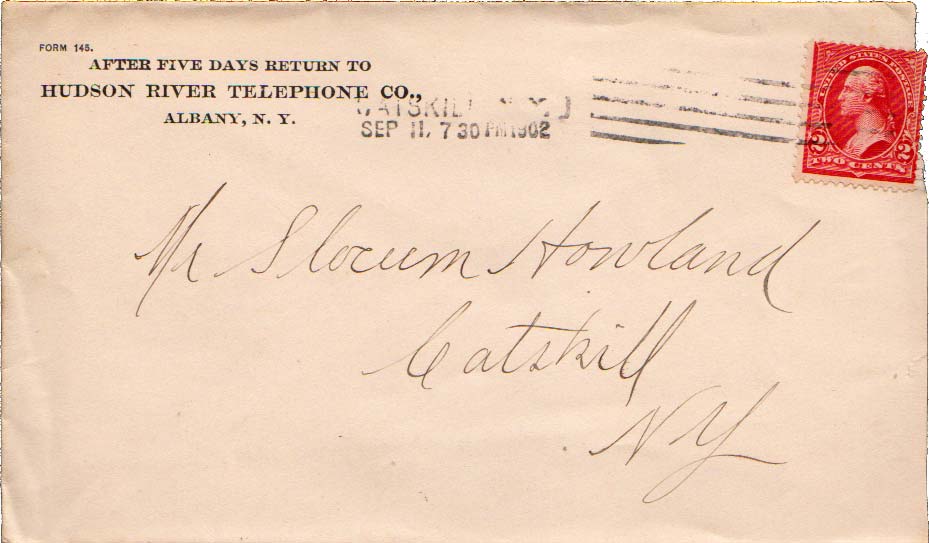 FORM 145.
AFTER FIVE DAYS RETURN TO
HUDSON RIVER TELEPHONE CO.,
ALBANY, N. Y.
CATSKILL N.Y.
SEP 11, 7 30 PM 1902
UNITED STATES POSTAGE
2 2
TWO CENTS
Mr Slocum Howland
Catskill
NY